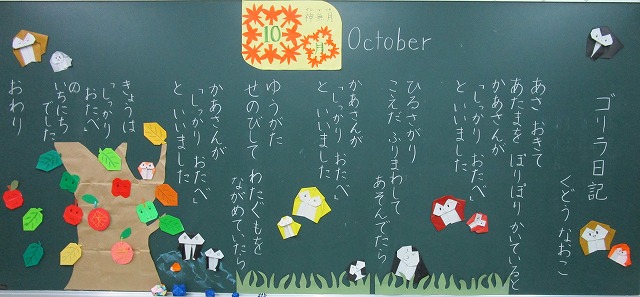 神無月
10月
October
ゴリラ日記
くどうなおこ
あさ おきて
あたまを ぼりぼり かいていると
かあさんが
「しっかり おたべ」
と いいました
ひるさがり
こえだ ふりまわして
あそんでたら
かあさんが
「しっかり おたべ」
と いいました
ゆうがた
せのびして わたぐもを
ながめていたら
かあさんが
「しっかり おたべ」
と いいました
きょうは
「しっかり
おたべ」
の
いちにち
でした
おわり